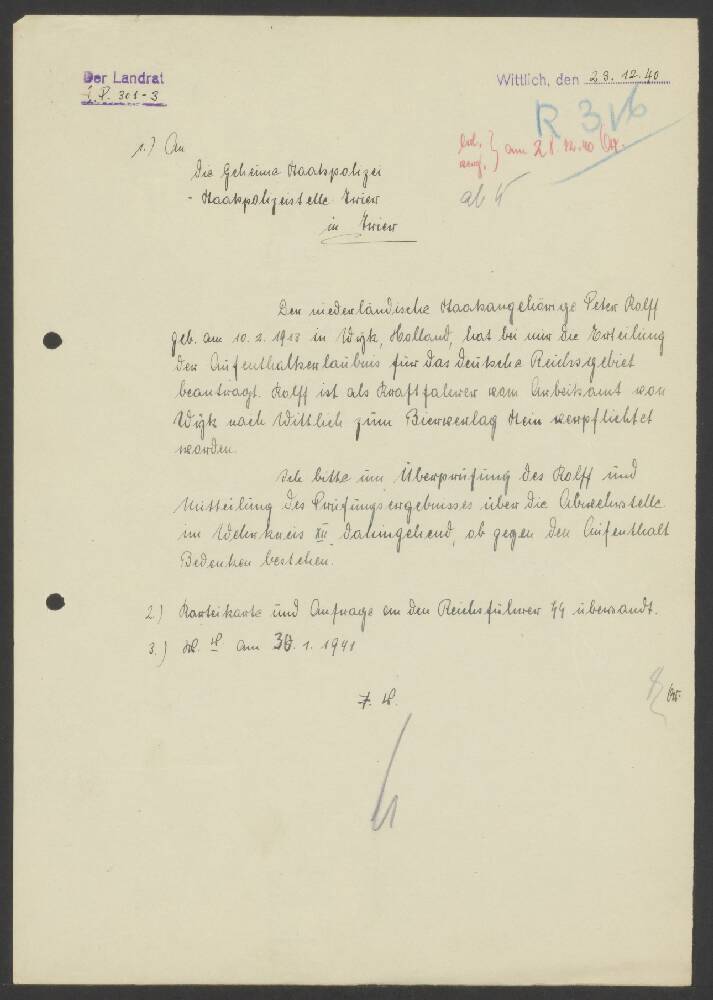 Der Landrat
I. P. 301-3
Wittlich, den 23. 12. 40
R 316
am 28. 12. 40
ab
1.) An
die Geheime Staatspolizei
- Staatspolizeistelle Trier
in Trier
Der niederländische Staatsangehörige Peter Rolff
geb. am 10. 2. 1913 in Wijk, Holland, hat bei mir die Erteilung
der Aufenthaltserlaubnis für das deutsche Reichsgebiet
beantragt. Rolff ist als Kraftfahrer vom Arbeitsamt von
Wijk nach Wittlich zum Bierverlag Stein verpflichtet
worden.
Ich bitte um Überprüfung des Rolff und
Mitteilung des Prüfungsergebnisses über die Abwehrstelle
im Wehrkreis XII dahingehend, ob gegen den Aufenthalt
Bedenken bestehen.
2.) Karteikarte und Anfrage an den Reichsführer SS übersandt.
3.) W. V. am 30. 1. 1941
J. V.